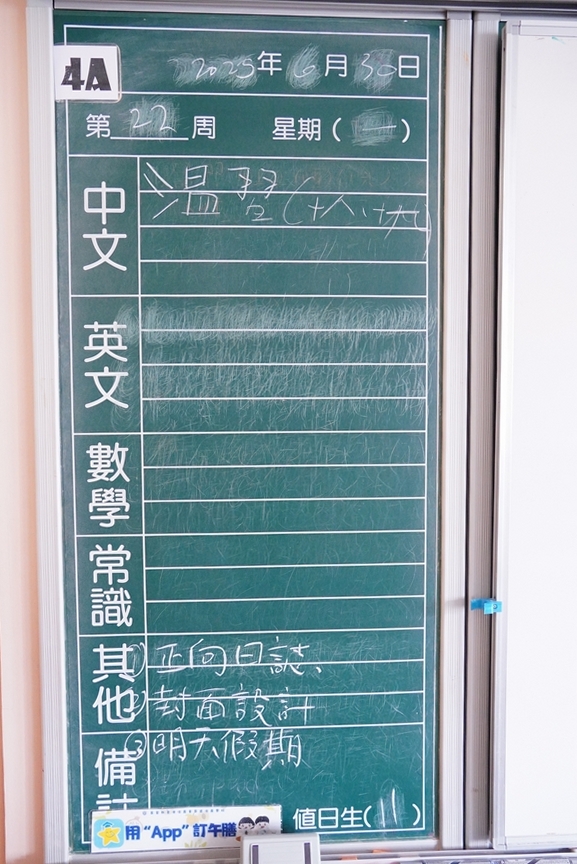 4A
2025年6月30日
第22周 星期(一)
中文
溫習(十八、十九)
英文
數學
常識
其他
① 正向日誌、
② 封面設計
③ 明天假期
備註
用“App”訂午膳
值日生(11)